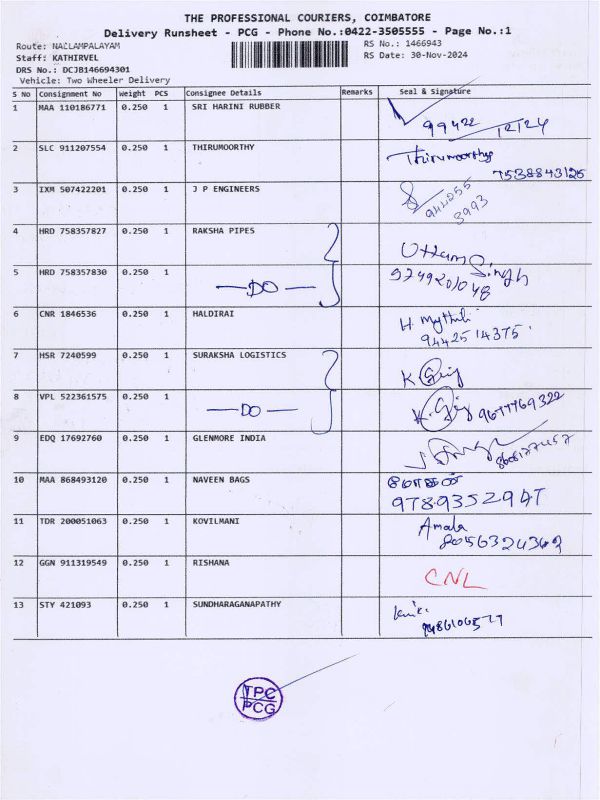 THE PROFESSIONAL COURIERS, COIMBATORE
Delivery Runsheet - PCG - Phone No.:0422-3505555 - Page No.:1
Route: NALLAMPALAYAM RS No.: 1466943
Staff: KATHIRVEL RS Date: 30-Nov-2024
DRS No.: DCJB146694301
Vehicle: Two Wheeler Delivery
S No Consignment No Weight PCS Consignee Details Remarks Seal & Signature
1 MAA 110186771 0.250 1 SRI HARINI RUBBER
99422 12124
2 SLC 911207554 0.250 1 THIRUMOORTHY Thirumoorthy
7538843126
3 IXM 507422201 0.250 1 J P ENGINEERS
944255
3993
4 HRD 758357827 0.250 1 RAKSHA PIPES
Uttam Singh
5 HRD 758357830 0.250 1 —DO— 9749201048
6 CNR 1846536 0.250 1 HALDIRAI H. Mythili
9442514375
7 HSR 7240599 0.250 1 SURAKSHA LOGISTICS
K
8 VPL 522361575 0.250 1 —DO— K. 9677769322
9 EDQ 17692760 0.250 1 GLENMORE INDIA
10 MAA 868493120 0.250 1 NAVEEN BAGS மோகன்
9789352947
11 TDR 200051063 0.250 1 KOVILMANI Amala
8056324342
12 GGN 911319549 0.250 1 RISHANA CNL
13 STY 421093 0.250 1 SUNDHARAGANAPATHY
TPC
PCG